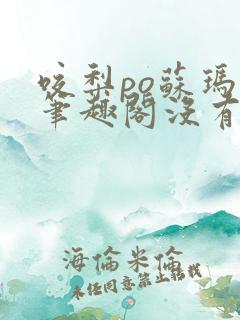 咬梨po蘇瑪
筆趣閣沒有
海倫米倫
未经同意禁止转载